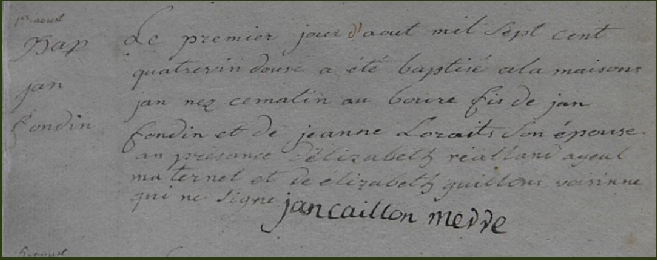 1er aout
Bap
jan
fondin
Le premier jour d'aout mil sept cent
quatrevin douse a été baptisé ala maisons
jan nez cematin au boure fis de jan
fondin et de jeanne Lozaits son épouse
an presance d'élizabeth réalland ayeul
maternel et de elizabeth guillons voisinne
qui ne signe jancaillon medde